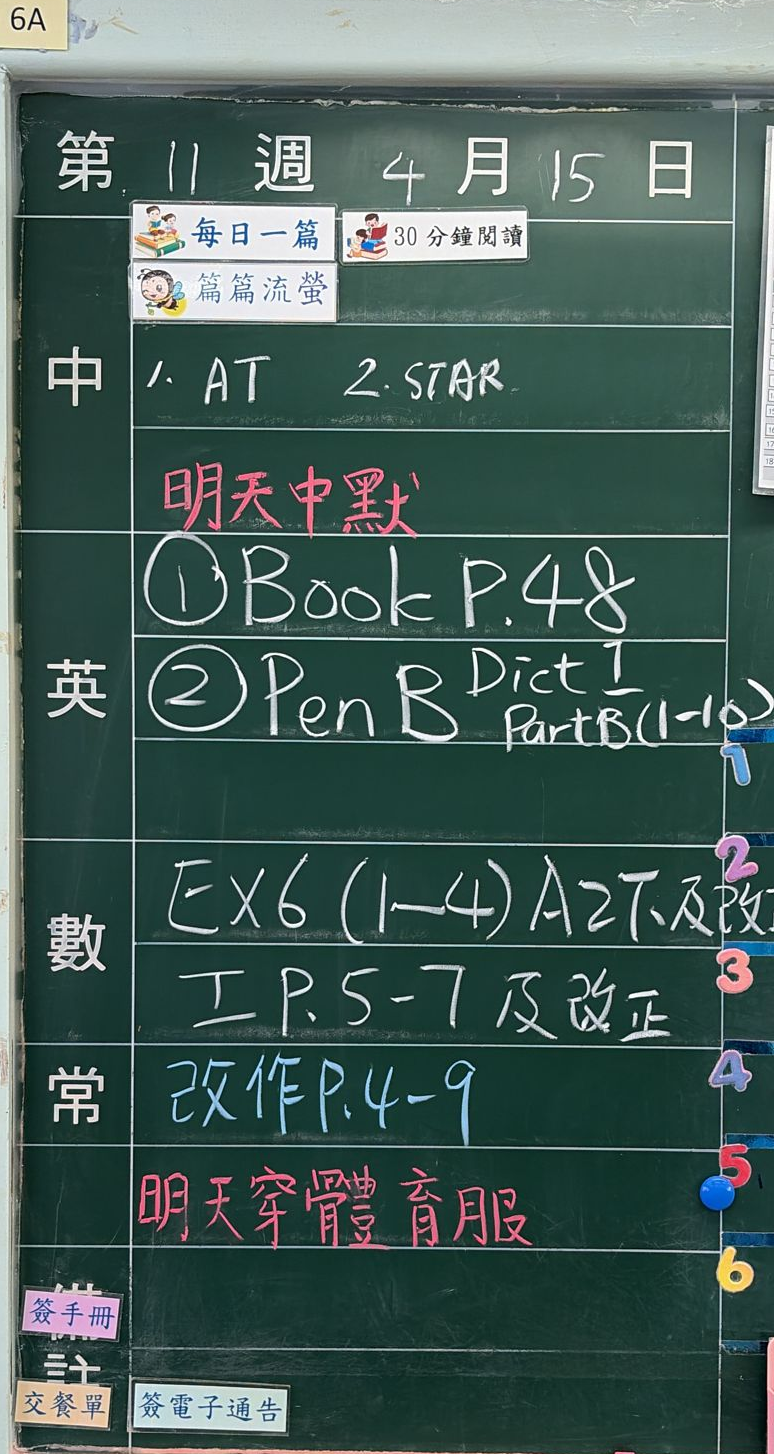 6A
第 11 週 4 月 15 日
每日一篇 30分鐘閱讀
篇篇流螢
中
1. AT 2. STAR
明天中默
① Book P.48
英
② Pen B Dict 1
Part B (1-10)
1
2
EX6 (1-4) A2下及改
數
3
工 P.5-7 及改正
4
常
改作P.4-9
5
明天穿體育服
6
備
簽手冊
註
交餐單 簽電子通告